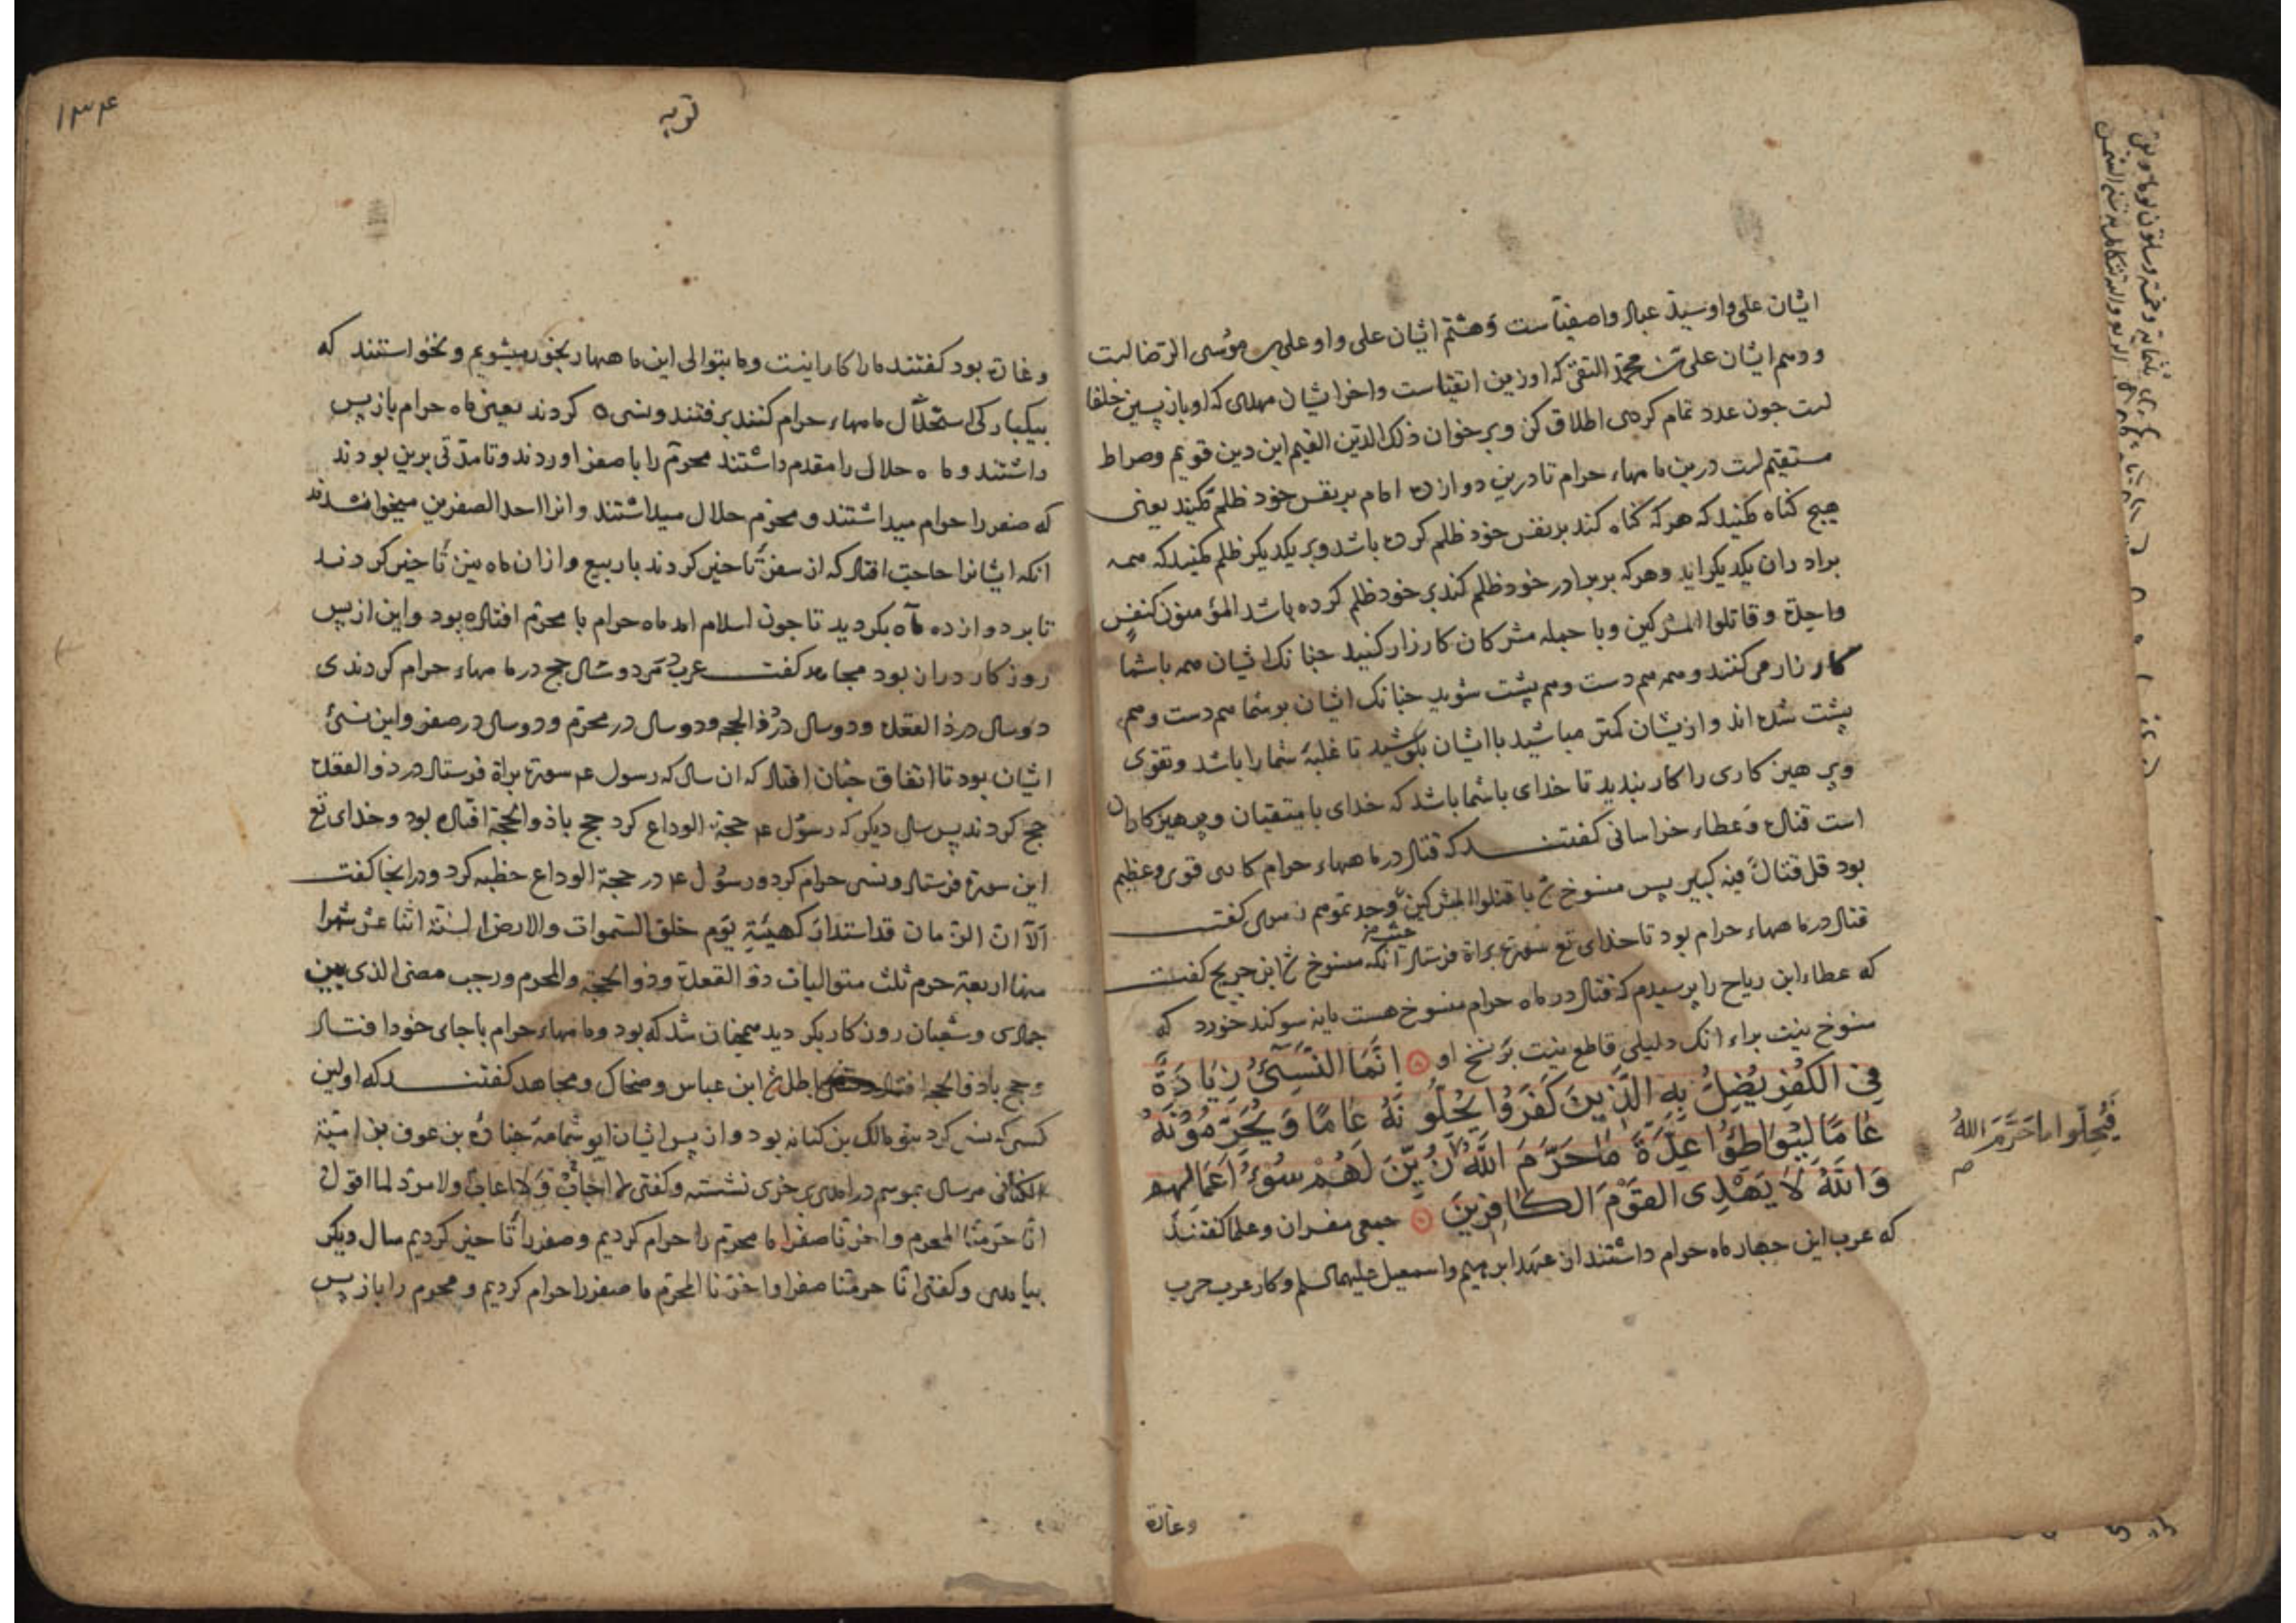 ایشان علی واو سید عباد واصفیاست وهشتم ایشان علی واو علی بن موسی الرضا است
ودهم ایشان علی بن محمد التقی که اوزین اتقیاست واخر ایشان مهدی که او باز پسین خلفا
است جون عدد تمام کردی اطلاق کن وبر خوان ذلک الدین القیم این دین قویم وصراط
مستقیم است درین ماههاء حرام تا درین دوازده امام بر نفس خود ظلم مکنید یعنی
هیچ کناه مکنید که هر که کناه کند بر نفس خود ظلم کرده باشد وبر یکدیکر ظلم مکنید که همه
برادران یکدیکراید وهر که بر برادر خود ظلم کند بر خود ظلم کرده باشد المؤمنون کنفس
واحدة وقاتلوا المشرکین وبا جمله مشرکان کارزار کنید جنانک ایشان همه باشما
کارزار می کنند وهمه هم دست وهم پشت شوید جنانک ایشان بر شما هم دست وهم
پشت شده اند واز یشان کمتر مباشید با ایشان بکوشید تا غلبه شما را باشد وتقوی
وپرهیز کاری را کار بندید تا خدای باشما باشد که خدای با متقیان وپرهیزکاران
است قتاده وعطاء خراسانی کفتند که قتال در ماههاء حرام کاری قوی وعظیم
بود قل قتال فیه کبیر پس منسوخ شد با قتلوا المشرکین حیث وجدتموهم زهری کفت
قتال در ماههاء حرام بود تا خدای تع سورة براة فرستاد انکه منسوخ شد ابن جریج کفت
که عطاء ابن ریاح را پرسیدم که قتال در ماه حرام منسوخ هست یا نه سوکند خورد که
منسوخ نیست براء انک دلیلی قاطع نیست بر نسخ او اِنَّمَا النَّسِیءُ زِیَادَةٌ
فِی الکُفْرِ یُضِلُّ بِهِ الَّذِینَ کَفَرُوا یُحِلُّونَهُ عَامًا وَیُحَرِّمُونَهُ
عَامًا لِیُوَاطِؤُا عِدَّةَ مَا حَرَّمَ اللَّهُ زُیِّنَ لَهُمْ سُوءُ اَعْمَالِهِم
وَاللَّهُ لَا یَهْدِی القَوْمَ الکَافِرِینَ جمعی مفسران وعلما کفتند
که عرب این جهار ماه حرام داشتند از عهد ابرهیم واسمعیل علیهما السلم وکار عرب حرب
فَیُحِلُّوا مَا حَرَّمَ اللهُ
وغارة
۱۳۴
توبه
وغارة بود کفتند ما را کارانیست وما بتوالی این ماهها رنجور میشویم ونخواستند که
بیکبارکی استحلال ماههاء حرام کنند برفتند ونسی کردند یعنی ماه حرام باز پس
داشتند وماه حلال را مقدم داشتند محرم را با صفر اوردند وتا مدتی برین بودند
که صفر را حرام میداشتند ومحرم حلال میداشتند وانرا احد الصفرین میخواندند
انکه ایشانرا حاجت افتاد که از سفر تاخیر کردند با ربیع وازان ماه نیز تاخیر کردند
تا بر دوازده ماه بکردید تا جون اسلام امد ماه حرام با محرم افتاده بود واین از پس
روزکار دراز بود مجاهد کفت عرب هر دو سال حج در ماههاء حرام کردندی
دوسال در ذا القعده ودوسال در ذو الحجه ودوسال در محرم ودوسال در صفر واین نسئ
ایشان بود تا اتفاق جنان افتاد که ان سال که رسول عم سورة براة فرستاد در ذو القعده
حج کردند پس سال دیکر که رسول عم حجة الوداع کرد حج با ذو الحجة افتاده بود وخدای تع
این سورة فرستاد ونسی حرام کرد ورسول عم در حجة الوداع خطبه کرد ودرانجا کفت
الا ان الزمان قد استدار کهیئة یوم خلق السموات والارض السنة اثنا عشر شهرا
منها اربعة حرم ثلث متوالیات ذو القعدة وذو الحجة والمحرم ورجب مضر الذی بین
جمادی وشعبان روزکار بکردید همچنان شد که بود وماههاء حرام باجای خود افتاد
وحج باذو الحجه افتاد باطل شد ابن عباس وضحاک ومجاهد کفتند که اولین
کسی که نسی کرد بنو مالک بن کنانه بود واز پس ایشان ابو ثمامه جناده بن عوف بن امیة
الکنانی هر سال بموسم درامدی بر خری نشسته وکفتی لا اجاب ولا اعاب ولا مرد لما اقول
انا حرمنا المحرم واخرنا صفرا ما محرم را حرام کردیم وصفر را تاخیر کردیم سال دیکر
بیامدی وکفتی انا حرمنا صفرا واخرنا المحرم ما صفر را حرام کردیم ومحرم را باز پس